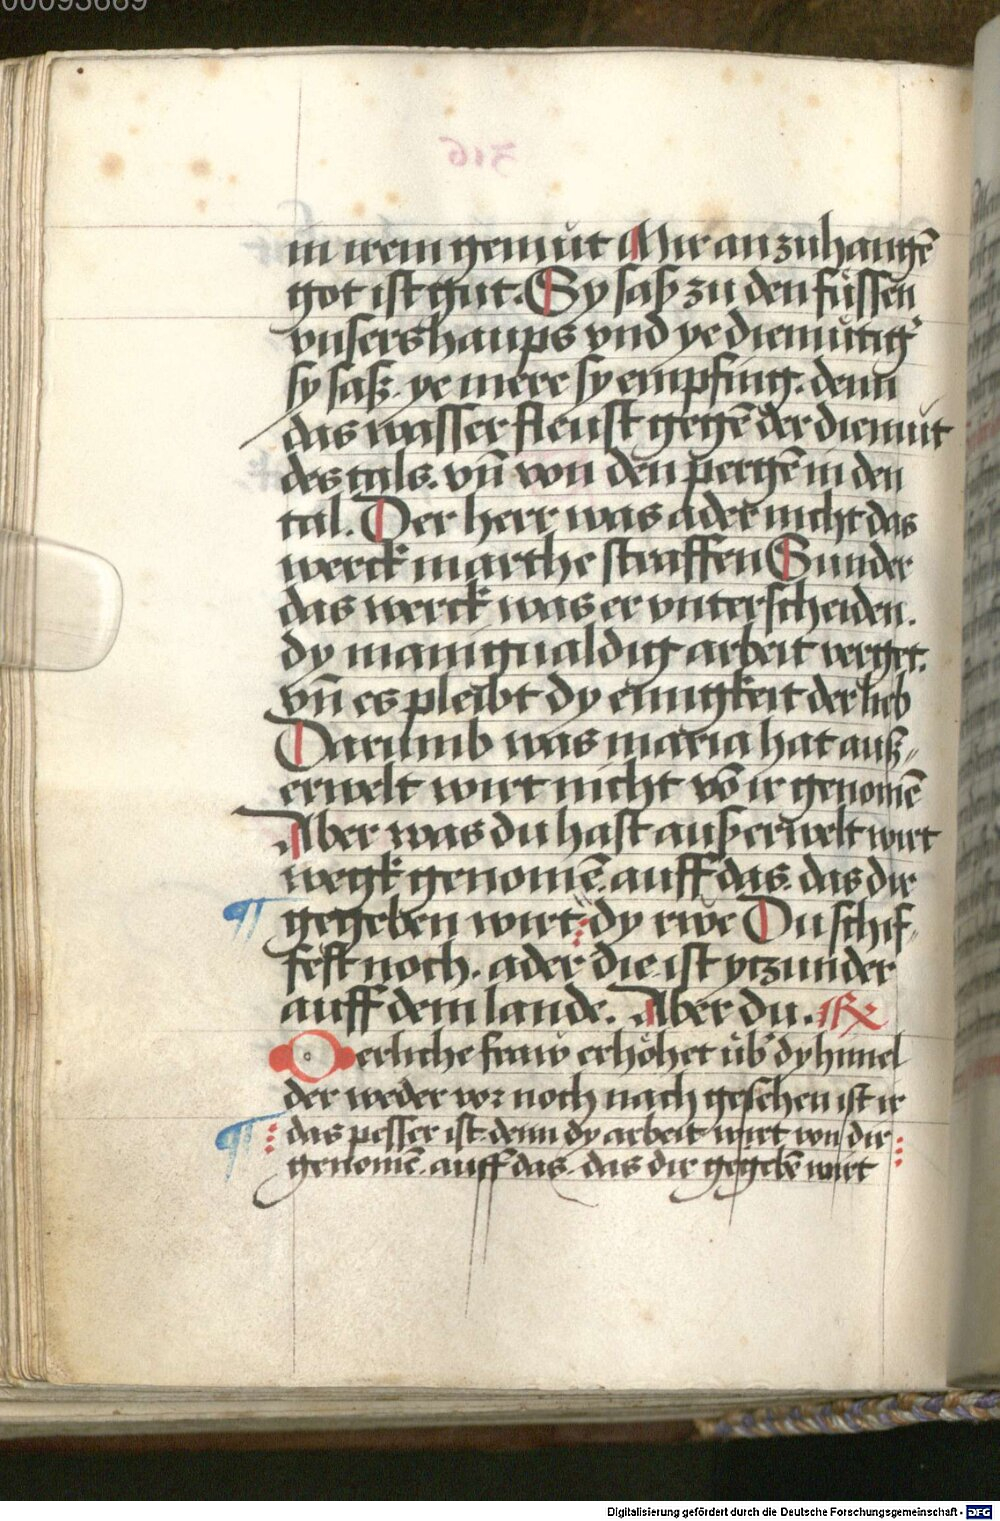 00093669
316
in irem gemüt Mir an zu hangē
got ist gut. Sy saß zu den füssen
vnsers haups vnd ye diemütig
sy saß. ye mere sy empfing. denn
das wasser fleust gegē der diemut
des tals. vñ von den pergē in den
tal. Der herr was ader nicht das
werck marthe straffen Sunder
das werck was er vnterscheiden.
dy manigualdig arbeit verget.
vñ es pleibt dy einigkeit der lieb
Darumb was maria hat auß„
erwelt wirt nicht vō ir genomē
Aber was du hast außerwelt wirt
wegk genomē. auff das. das dir
gegeben wirt dy rwe Du schif„
fest noch. ader die ist yczunder
auff dem lande. Aber du. R
erliche fraw erhöhet üb' dy himel
der weder vor noch nach gesehen ist ir
das pesser ist. denn dy arbeit wirt von dir
genomē. auff das. das dir gegebē wirt
Digitalisierung gefördert durch die Deutsche Forschungsgemeinschaft - DFG